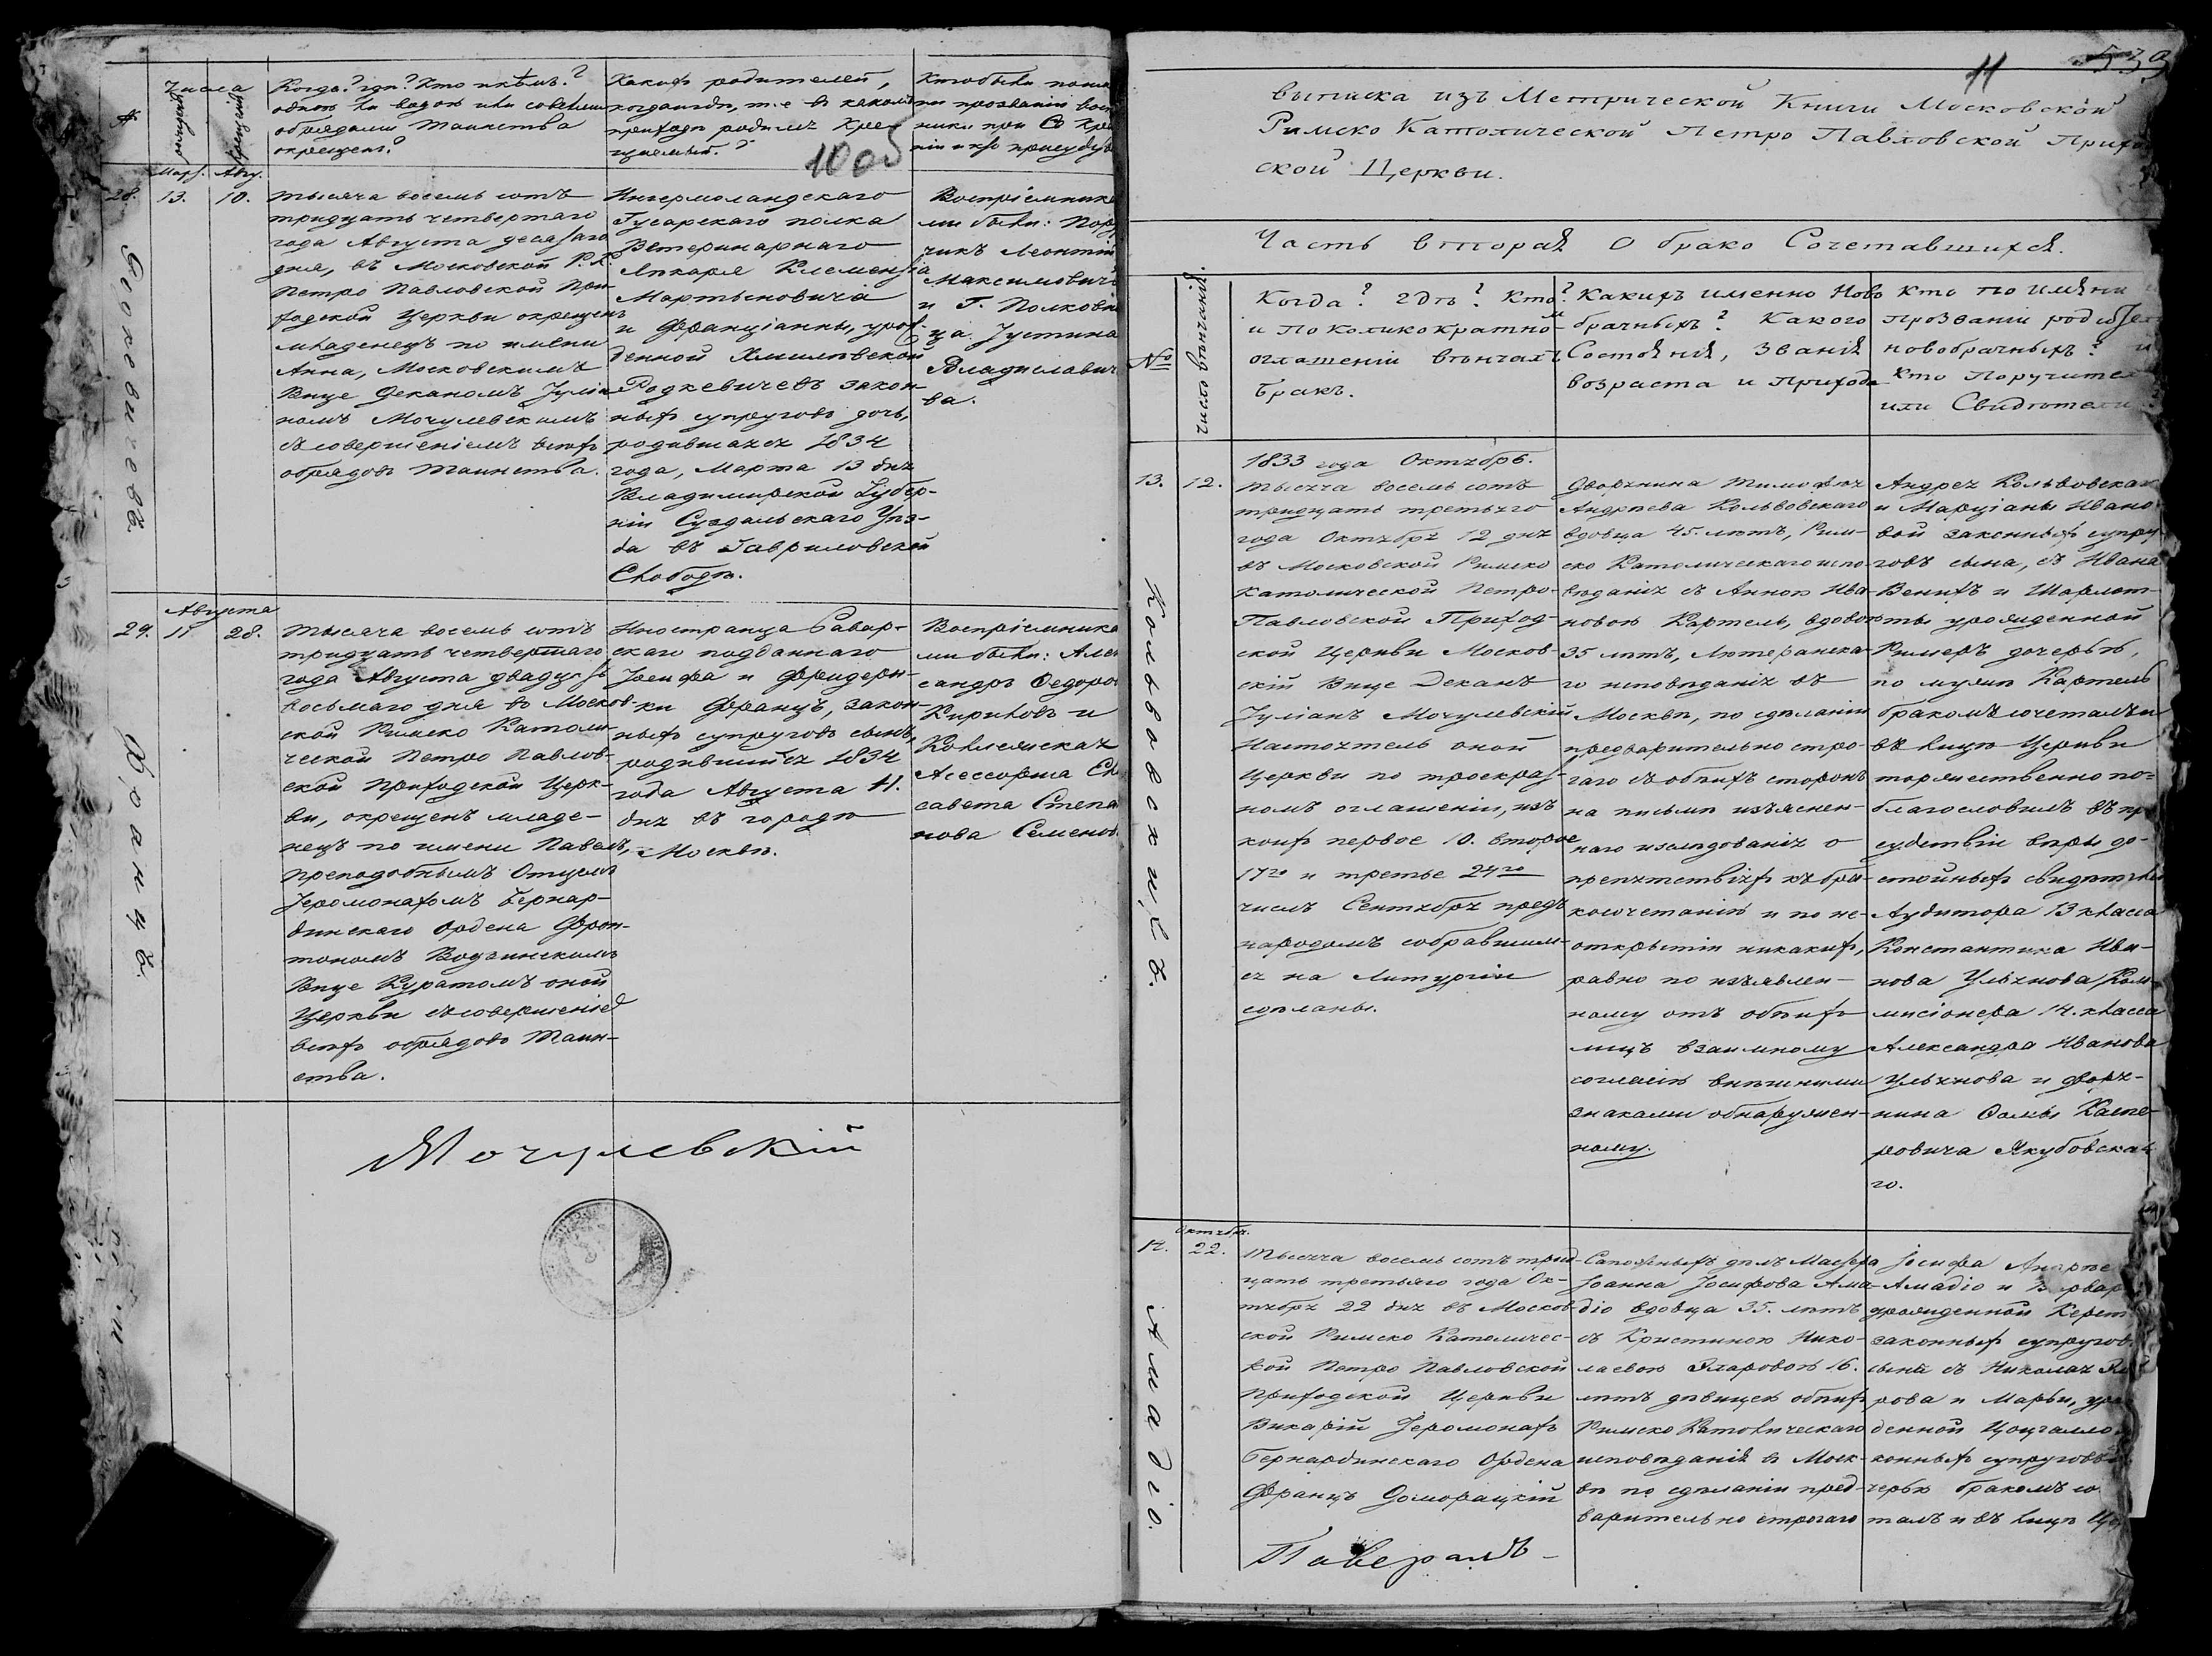 №
Числа
рожденія
крещенія
Когда? гдѣ? Кто и кѣмъ?
одною ли водою или со всѣми
обрядами Таинства
окрещенъ?
Какихъ родителей,
когда и гдѣ, т. е. въ какомъ
приходѣ родился Кре-
щаемый?
Кто были
по прозванію
ники при Св.
10 об
28.
Март.
13.
Авгу.
10.
Тысяча восемь сотъ
тридцать четвертаго
года Августа десятаго
дня, въ Московской Р. К.
Петро Павловской При-
ходской Церкви окрещенъ
младенецъ по имени
Анна, Московскимъ
Вице Деканомъ Юліа-
номъ Мочулевскимъ
съ совершеніемъ всѣхъ
обрядовъ Таинства.
Ингермоландскаго
Гусарскаго полка
Ветеринарнаго
Лѣкаря Клеменсія
Мартыновича
и Франціанны, урож-
денной
законныхъ супруговъ дочь,
родившаяся 1834
года, Марта 13 дня
Владимирской Губер-
ніи Суздальскаго Уѣз-
да въ Гавриловской
Слободѣ.
Воспріемника-
ми были: Пору
чикъ Леонтій
Максимовичъ
и Г. Полковни
ца Устина
Владиславич
ва.
29.
Августа
11
28.
Францъ.
Тысяча восемь сотъ
тридцать четвертаго
года Августа двадцать
восьмаго дня въ Москов-
ской Римско Католи-
ческой Петро Павлов-
ской Приходской Церк-
ви, окрещенъ младе-
нецъ по имени Павелъ,
преподобнымъ Отцемъ
Іеромонахомъ Бернар-
динскаго Ордена Фрон-
тономъ Водзинскимъ
Вице Куратомъ оной
Церкви съ совершеніемъ
всѣхъ обрядовъ Таин-
ства.
Иностранца Бавар-
скаго подданнаго
Іосифа и Фридери-
ки Францъ, закон-
ныхъ супруговъ сынъ,
родившійся 1834
года Августа 11.
дня въ городѣ
Москвѣ.
Воспріемника
ми были: Алек
сандръ Федоро
Кириловъ и
Коллежская
Асессорша Ели
савета Степа
нова Семенов.
Мочулевскій
11
539
Выписка изъ Метрической Книги Московской
Римско Католической Петро Павловской Приход
ской Церкви.
Часть вторая О брако Сочетавшихся.
№
Число вѣнчанія.
Когда? гдѣ? Кто?
и по коликократномъ
оглашеніи вѣнчалъ
бракъ.
Какихъ именно Ново
брачныхъ? Какого
Состоянія, Званія
возраста и Прихода
Кто по имени и
прозванію родители
новобрачныхъ? и
кто Поручители
или Свидѣтели
13.
12.
1833 года Октября.
Тысяча восемь сотъ
тридцать третьяго
года Октября 12 дня
въ Московской Римско
Католической Петро-
Павловской Приход-
ской Церкви Москов-
скій Вице Деканъ
Юліанъ Мочулевскій
Настоятель оной
Церкви по троекрат-
номъ оглашеніи, изъ
коихъ первое 10. второе
17го и третье 24го
числъ Сентября предъ
народомъ собравшим-
ся на Литургіи
сдѣланы.
Дворянина Тимофея
Андреева Кольвовскаго
вдовца 45. лѣтъ, Рим-
ско Католическаго испо-
вѣданія съ Анною Ива-
новою Картель, вдовою
35 лѣтъ, Лютеранска-
го исповѣданія въ
Москвѣ, по сдѣланіи
предварительно стро-
гаго съ обѣихъ сторонъ
на письмѣ изъяснен-
наго изслѣдованія о
препятствіяхъ къ бра-
косочетанію и по не-
открытіи никакихъ,
равно по изъявлен-
ному отъ обѣихъ
лицъ взаимному
согласію внѣшними
знаками обнаружен-
ному.
Андрея Кольвовскаго
и Марціаны Ивано-
вой законныхъ супру-
говъ сына, съ Ивана
Венихъ и Шарлот-
ты урожденной
Ример дочерью,
по мужѣ Картель
бракомъ сочеталъ и
въ лицѣ Церкви
торжественно по-
благословилъ въ при
сутствіи вѣры до-
стойныхъ свидѣтелей
Аудитора 13 класса
Константина Ива-
нова Ульянова Ком-
мисіонера 14. класса
Александра Иванова
Ульянова и дворя-
нина Фомы Каспе-
ровича Якубовска-
го.
14.
Октября.
22.
Амадіо.
Тысяча восемь сотъ трид-
цать третьяго года Ок-
тября 22 дня въ Москов-
ской Римско Католичес-
кой Петро Павловской
Приходской Церкви
Викарій Іеромонахъ
Бернардинскаго Ордена
Францъ Доморацкій
Сапожныхъ дѣлъ Мастера
Іоанна Іосифова Ама-
діо вдовца 35. лѣтъ
съ Кристиною Нико-
лаевою Эларовою 16.
лѣтъ дѣвицею обѣихъ
Римско Католическаго
исповѣданія въ Моск-
вѣ по сдѣланіи пред-
варительно строгаго
Іосифа Андрее
Амадіо и Варвар
урожденной Керест
законныхъ супругов
сына съ Николая Эла
рова и Марьи, уро
денной
конныхъ супруговъ
черью бракомъ со
талъ и въ лицѣ Це